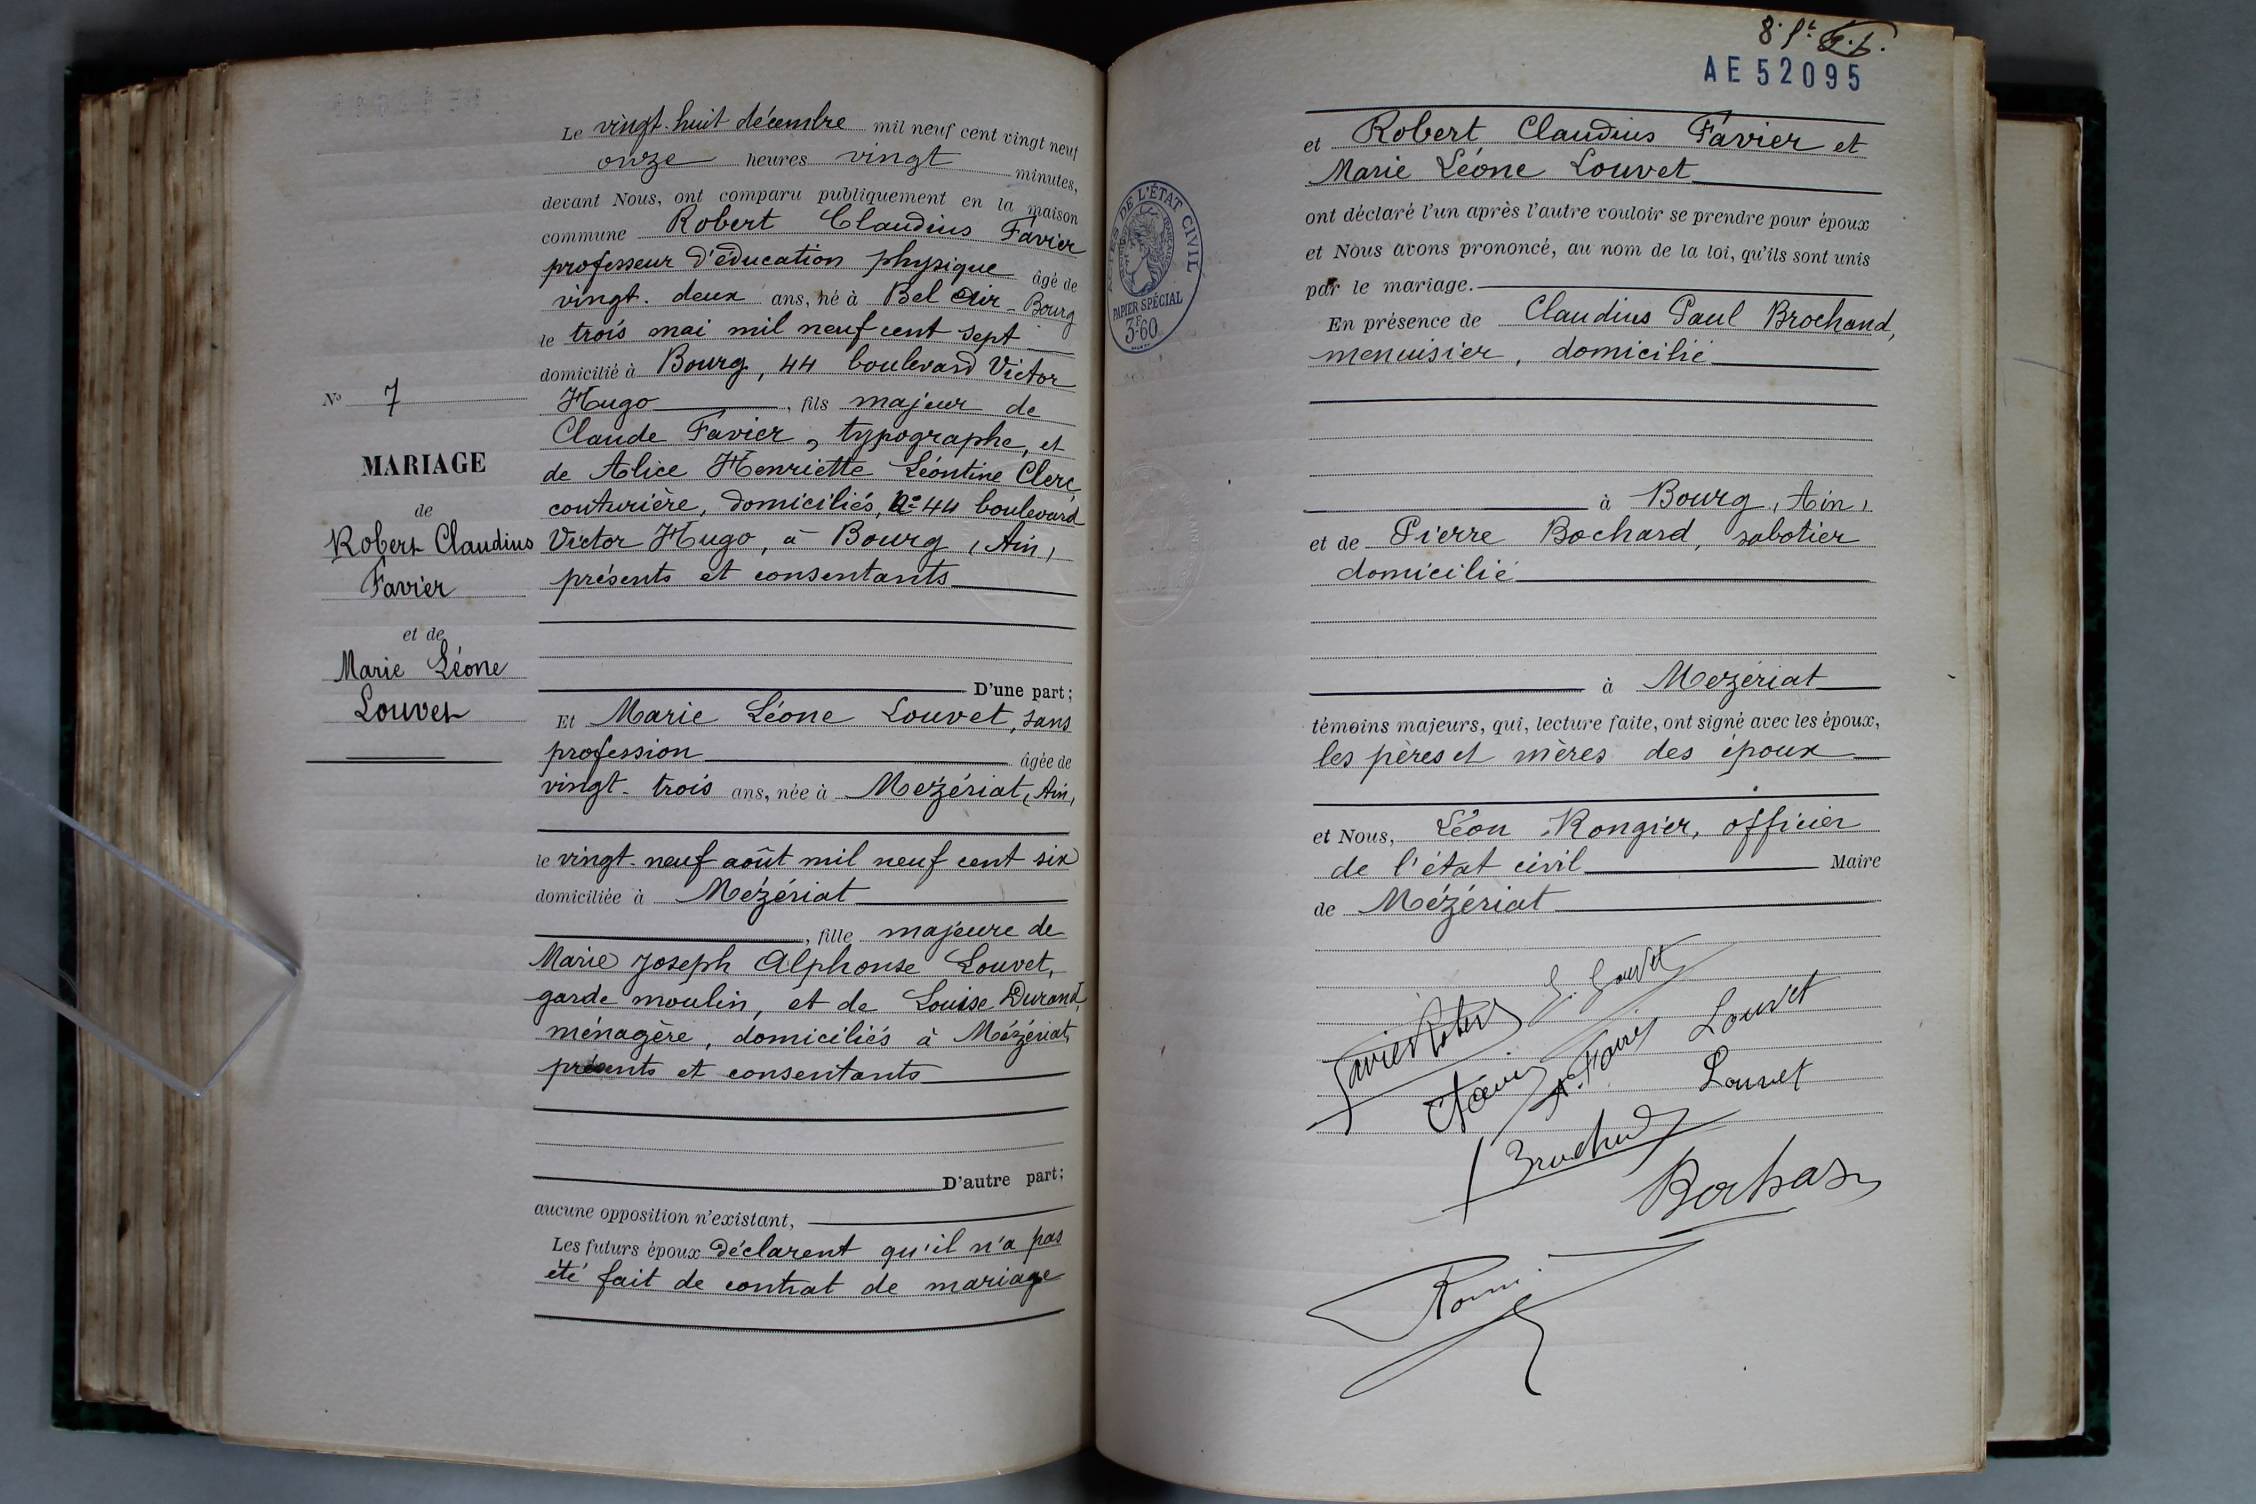 Le vingt-huit décembre mil neuf cent vingt neuf
onze heures vingt minutes,
devant Nous, ont comparu publiquement en la maison
commune Robert Claudius Favier
professeur d'éducation physique âgé de
vingt-deux ans, né à Bel Air - Bourg
le trois mai mil neuf cent sept
domicilié à Bourg, 44 boulevard Victor
Hugo, fils majeur de
Claude Favier, typographe, et
de Alice Henriette Léontine Clerc,
couturière, domiciliés, n° 44 boulevard
Victor Hugo, à Bourg (Ain)
présents et consentants
D'une part;
N° 7
MARIAGE
de
Robert Claudius
Favier
et de
Marie Léone
Louvet
Et Marie Léone Louvet, sans
profession âgée de
vingt-trois ans, née à Mézériat (Ain)
le vingt-neuf août mil neuf cent six
domiciliée à Mézériat
, fille majeure de
Marie Joseph Alphonse Louvet,
garde moulin, et de Louise Durand,
ménagère, domiciliés à Mézériat,
présents et consentants
D'autre part;
aucune opposition n'existant,
Les futurs époux déclarent qu'il n'a pas
été fait de contrat de mariage
AE 52095
ACTES DE L'ÉTAT CIVIL
PAPIER SPÉCIAL
3F60
et Robert Claudius Favier et
Marie Léone Louvet
ont déclaré l'un après l'autre vouloir se prendre pour époux
et Nous avons prononcé, au nom de la loi, qu'ils sont unis
par le mariage.
En présence de Claudius Paul Brochand,
menuisier, domicilié
à Bourg (Ain)
et de Pierre Bochard, sabotier
domicilié
à Mézériat
témoins majeurs, qui, lecture faite, ont signé avec les époux,
les pères et mères des époux
et Nous, Léon Rongier, officier
de l'état civil Maire
de Mézériat
Favier Robert
Louvet
Louvet
Louvet